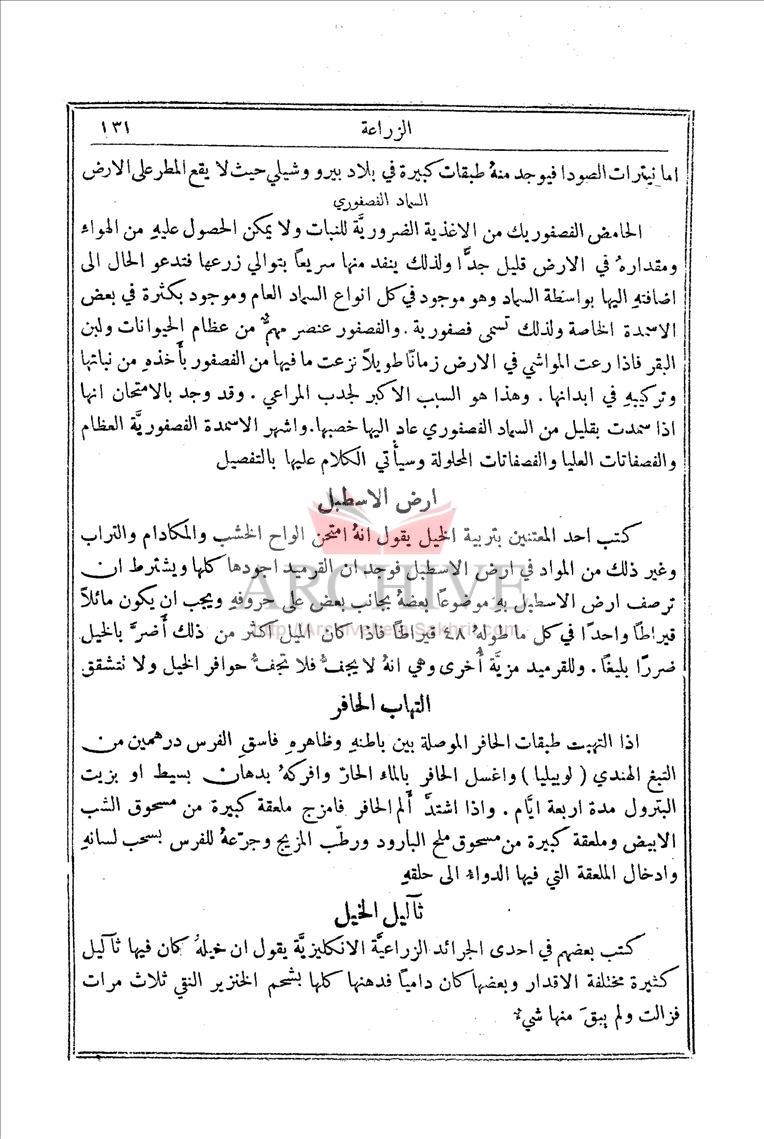 الزراعة ١٣١
اما نيترات الصودا فيوجد منهُ طبقات كبيرة في بلاد بيرو وشيلي حيث لا يقع المطر على الارض
السماد الفصفوري
الحامض الفصفوريك من الاغذية الضروريَّة للنبات ولا يمكن الحصول عليهِ من الهواء
ومقدارهُ في الارض قليل جدًّا ولذلك ينفد منها سريعاً بتوالي زرعها فتدعو الحال الى
اضافتهِ اليها بواسطة السماد وهو موجود في كل انواع السماد العام وموجود بكثرة في بعض
الاسمدة الخاصة ولذلك تسمى فصفورية . والفصفور عنصر مهمٌّ من عظام الحيوانات ولبن
البقر فاذا رعت المواشي في الارض زمانًا طويلاً نزعت ما فيها من الفصفور بأخذهِ من نباتها
وتركيبهِ في ابدانها . وهذا هو السبب الاكبر لجدب المراعي . وقد وجد بالامتحان انها
اذا سمدت بقليل من السماد الفصفوري عاد اليها خصبها. واشهر الاسمدة الفصفوريَّة العظام
والفصفاتات العليا والفصفاتات المحلولة وسيأتي الكلام عليها بالتفصيل
ارض الاسطبل
كتب احد المعتنين بتربية الخيل يقول انهُ امتحن الواح الخشب والمكادام والتراب
وغير ذلك من المواد في ارض الاسطبل فوجد ان القرميد اجودها كلها ويشترط ان
ترصف ارض الاسطبل بهِ موضوعاً بعضهُ بجانب بعض على حروفهِ ويجب ان يكون مائلاً
قيراطاً واحدًا في كل ما طولهُ ٤٨ قيراطاً فاذا كان الميل اكثر من ذلك أَضرَّ بالخيل
ضررًا بليغًا . وللقرميد مزيَّة أُخرى وهي انهُ لا يجفُّ فلا تجفُّ حوافر الخيل ولا تتشقق
التهاب الحافر
اذا التهبت طبقات الحافر الموصلة بين باطنهِ وظاهرهِ فاسقِ الفرس درهمين من
التبغ الهندي ( لوبيليا ) واغسل الحافر بالماء الحارّ وافركهُ بدهان بسيط او بزيت
البترول مدة اربعة ايَّام . واذا اشتدَّ أَلم الحافر فامزج ملعقة كبيرة من مسحوق الشب
الابيض وملعقة كبيرة من مسحوق ملح البارود ورطّب المزيج وجرّعهُ للفرس بسحب لسانهِ
وادخال الملعقة التي فيها الدواء الى حلقهِ
ثآليل الخيل
كتب بعضهم في احدى الجرائد الزراعيَّة الانكليزيَّة يقول ان خيلهُ كان فيها ثآليل
كثيرة مختلفة الاقدار وبعضها كان داميًا فدهنها كلها بشحم الخنزير النقي ثلاث مرات
فزالت ولم يبقَ منها شيءٌ
ARCHIVE
http://Archivebeta.Sakhrit.com